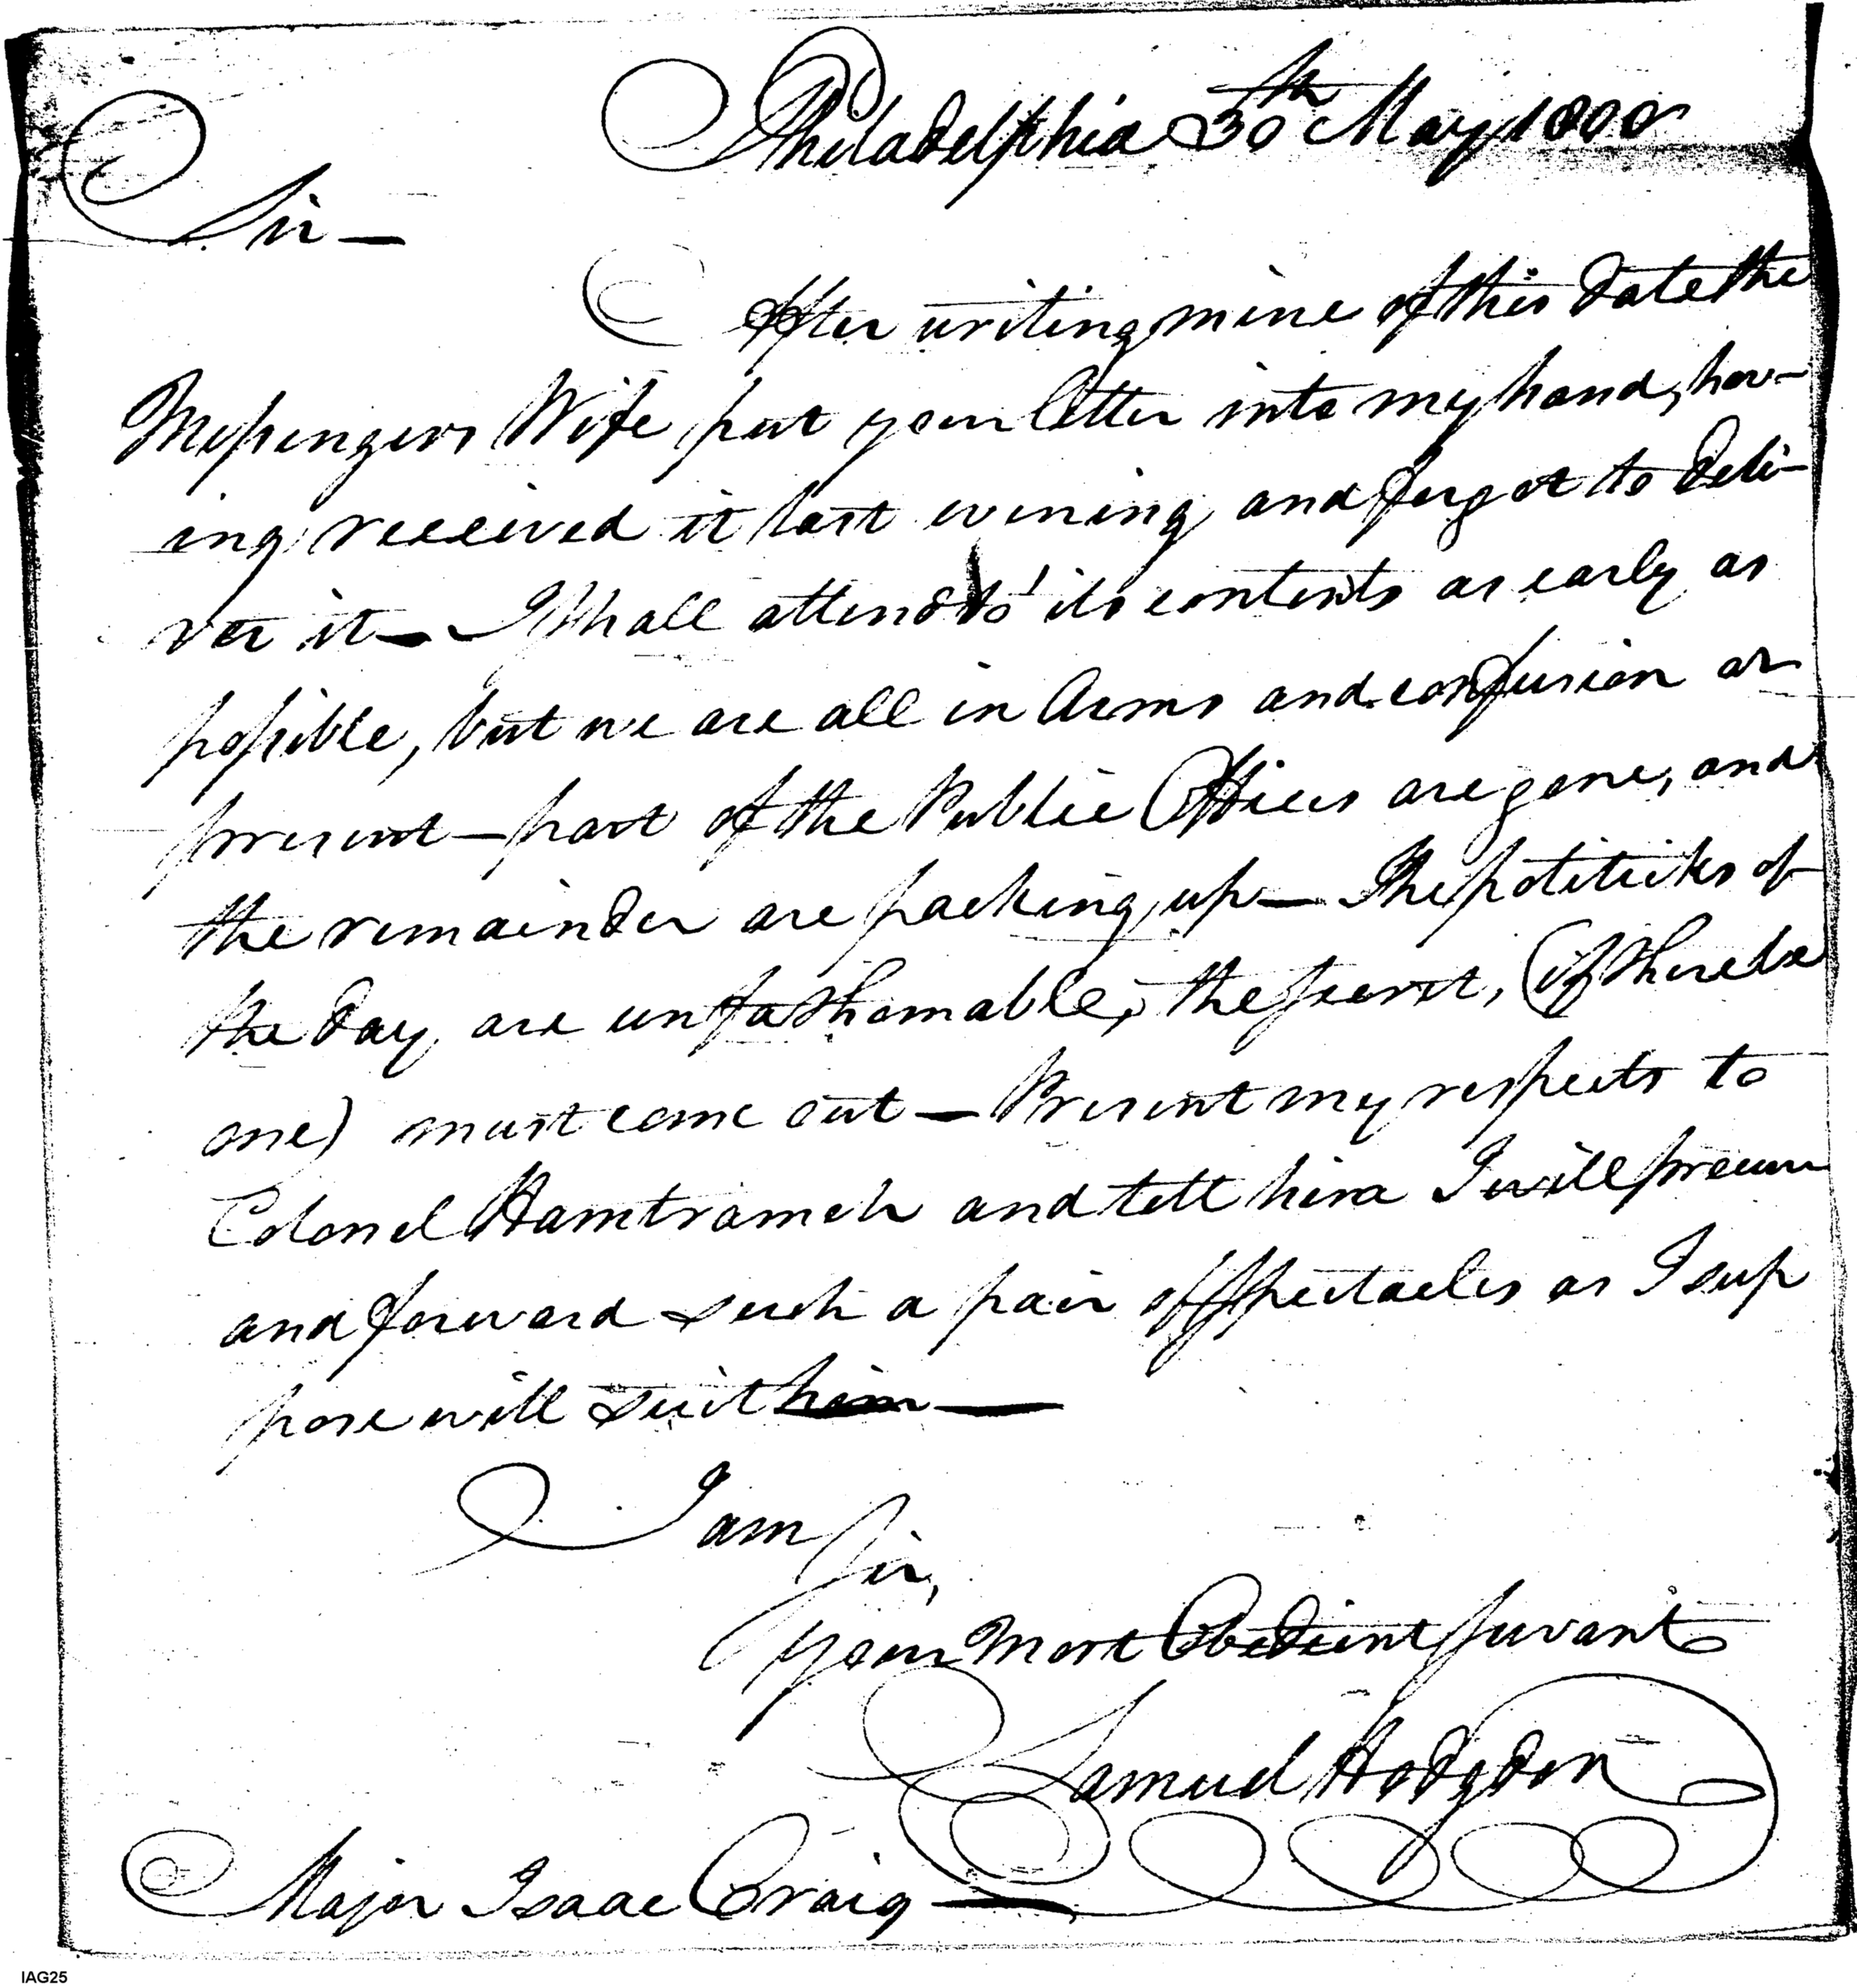 Philadelphia 30th May 1800
Sir —
After writing mine of this date the
Messengers Wife put your letter into my hand, hav-
ing received it last evening and forgot to deli-
ver it — I shall attend to its contents as early as
possible, but we are all in Arms and confusion at
present — part of the Public Offices are gone, and
the remainder are packing up — The politicks of
the day are unfathomable, the secret, (if there be
one) must come out — Present my respects to
Colonel Hamtramck and tell him I will procure
and forward such a pair of spectacles as I sup
pose will suit him —
I am
Sir,
your Most Obedient Servant
Samuel Hodgdon
Major Isaac Craig —
IAG25